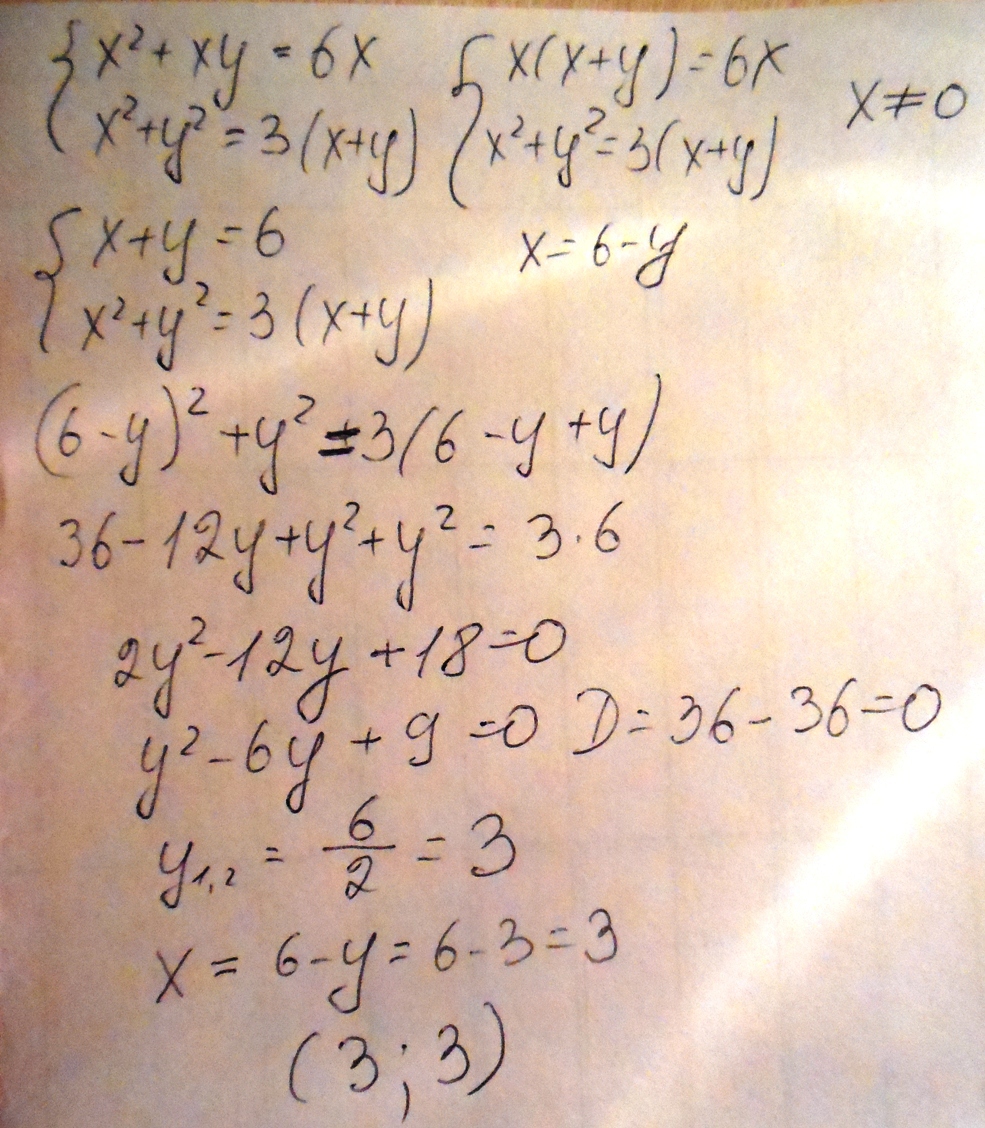 { x² + xy = 6x { x(x+y) = 6x x ≠ 0
x² + y² = 3(x+y) x² + y² = 3(x+y)
{ x + y = 6 x = 6 - y
x² + y² = 3(x+y)
(6 - y)² + y² = 3(6 - y + y)
36 - 12y + y² + y² = 3·6
2y² - 12y + 18 = 0
y² - 6y + 9 = 0 D = 36 - 36 = 0
y₁,₂ = 6/2 = 3
x = 6 - y = 6 - 3 = 3
(3; 3)